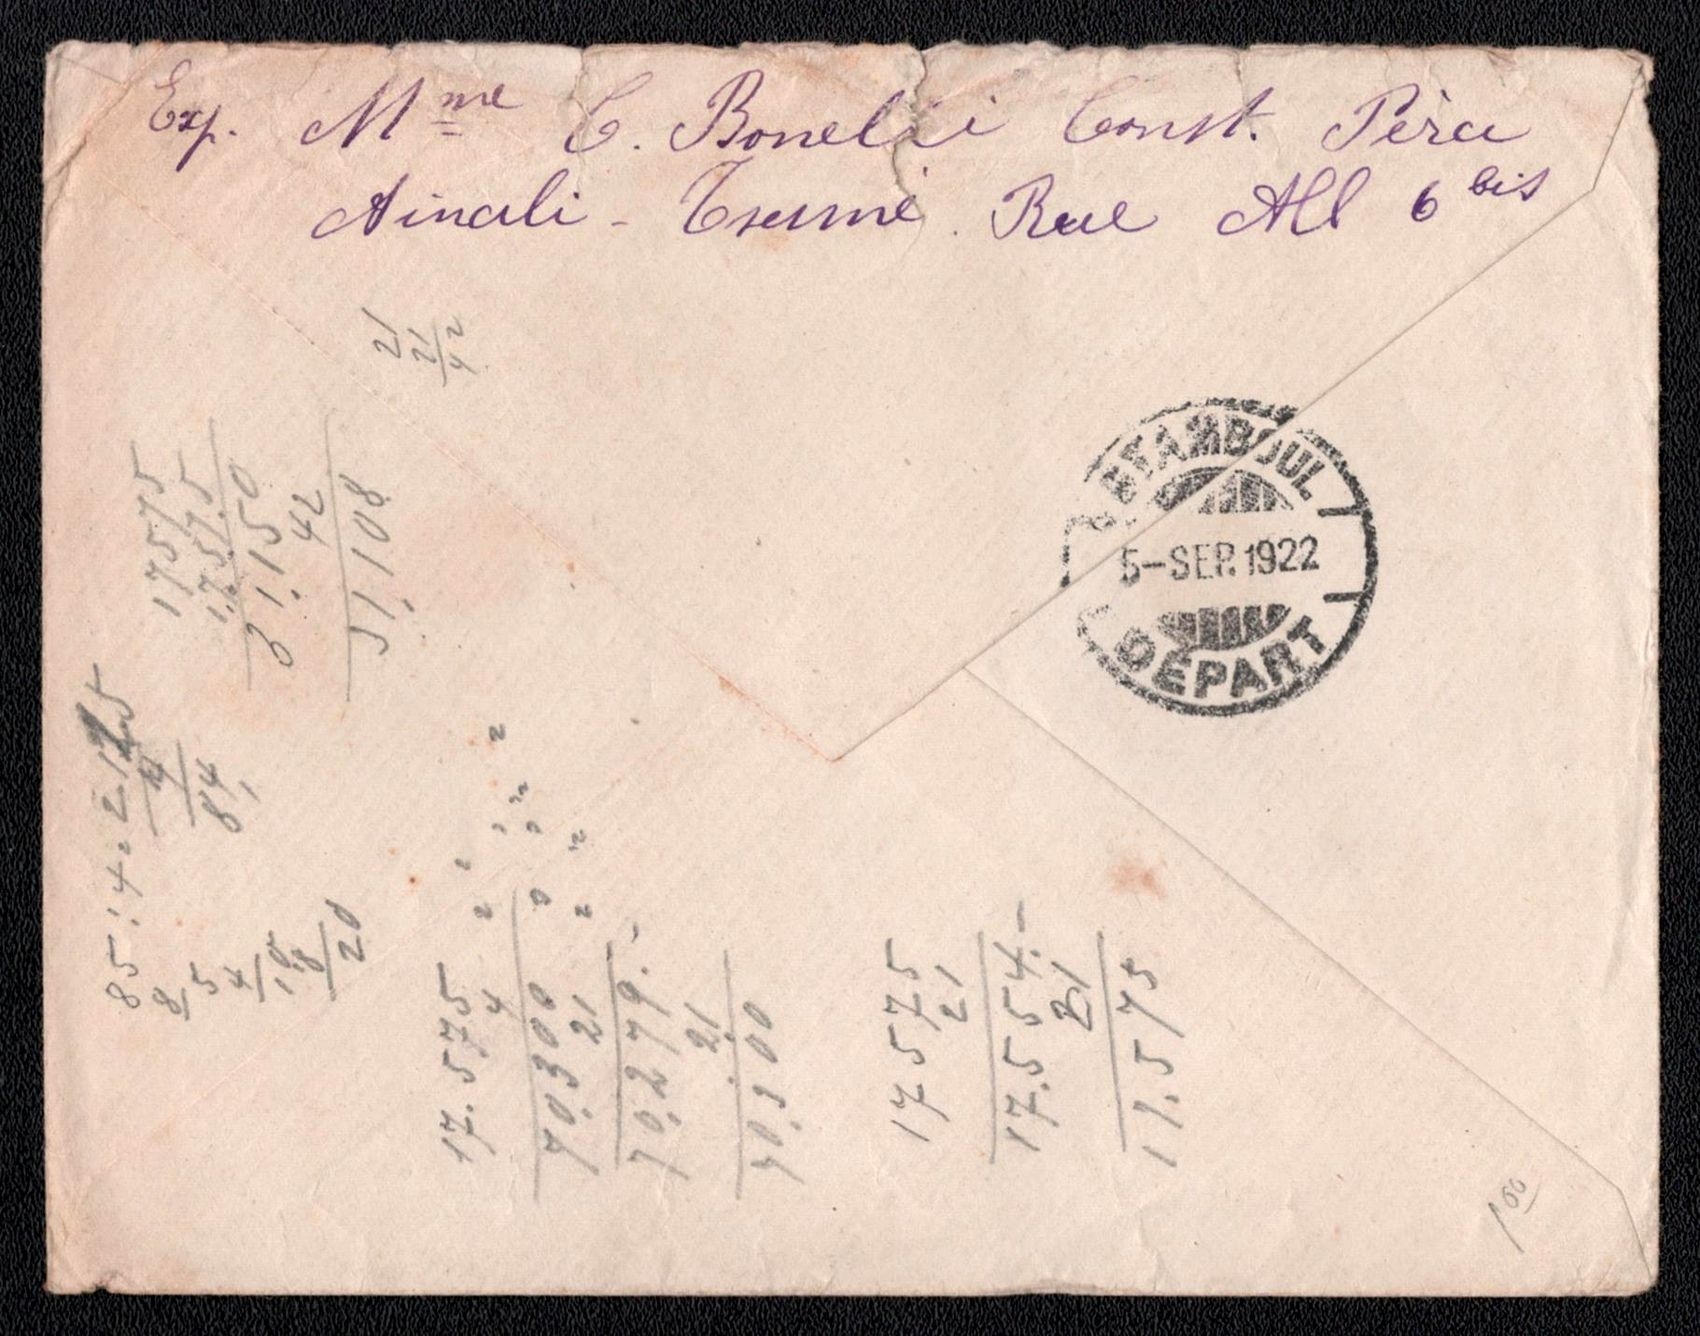 Exp. Mme C. Bonelli Const. Pèra
Ainali - Tsesmé. Rue All 6 bis
STAMBOUL
5-SEP. 1922
DÉPART
21
21
42
17575
17575
3.1150
42
31.108
85:4=2125
8
5
4
10
8
20
4
84
17.575
4
70.300
21
70.279.-
21
70.300
17575
21
17.554.-
21
17.575
1 00